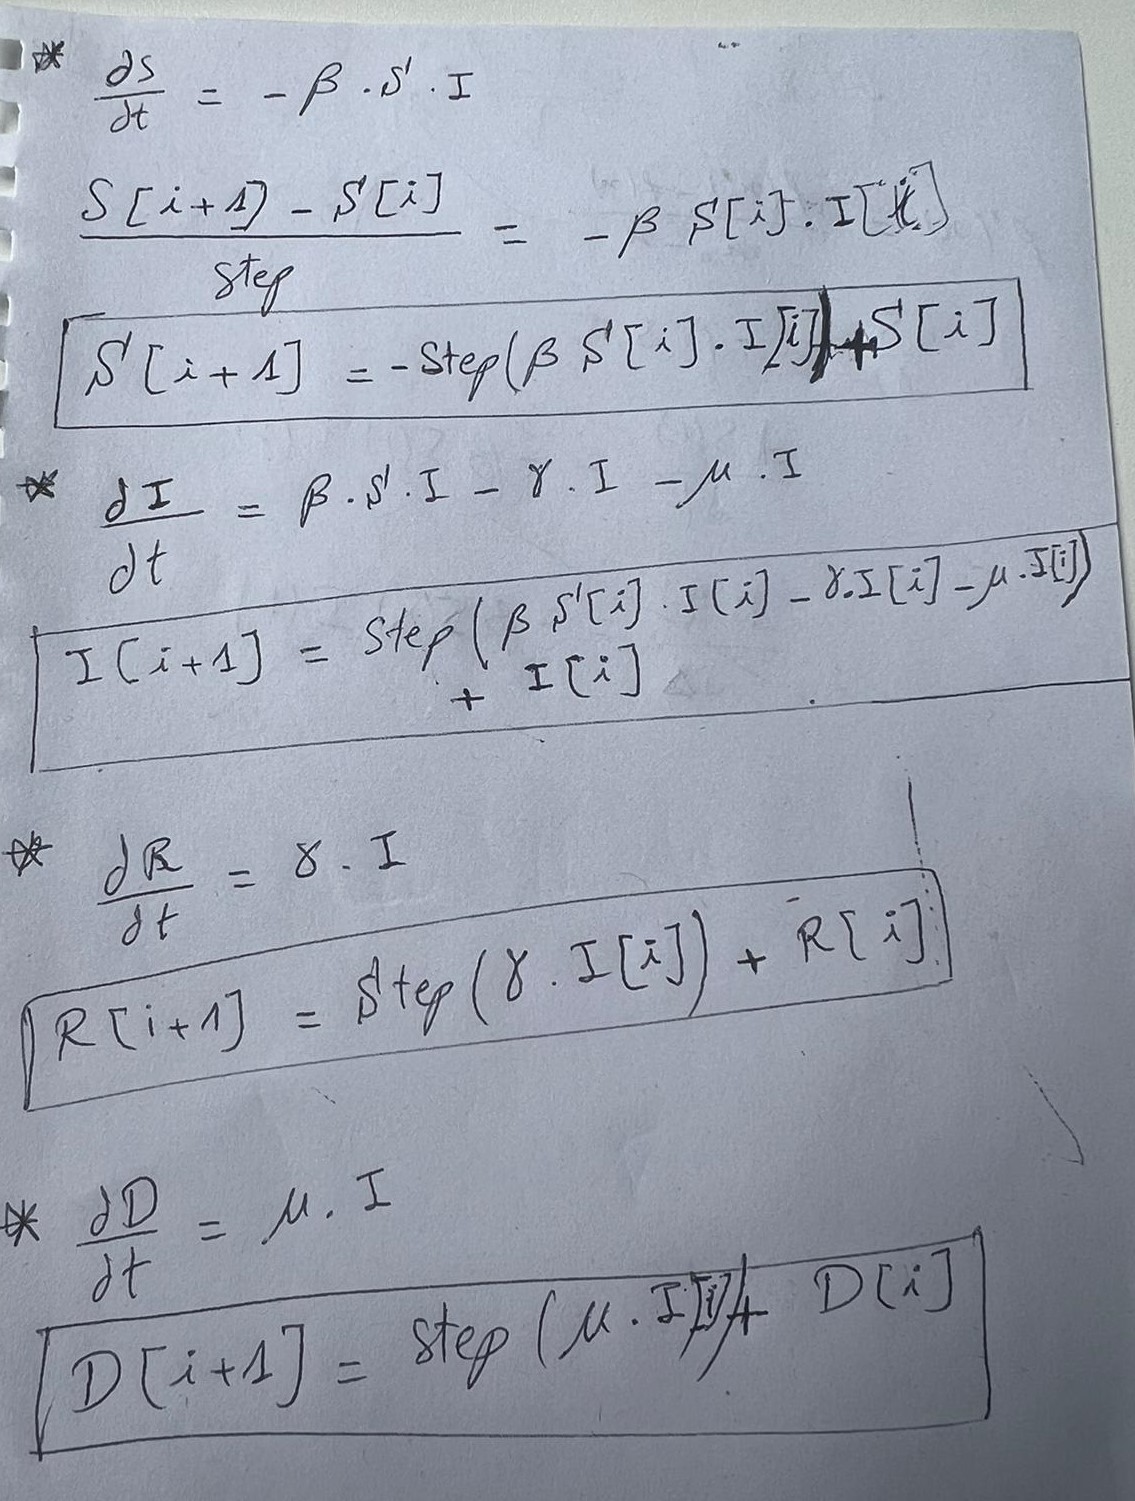 * dS/dt = - β . S . I
(S[i+1] - S[i]) / Step = - β S[i] . I[i]
S[i+1] = - Step(β S[i] . I[i]) + S[i]
* dI/dt = β . S . I - γ . I - μ . I
I[i+1] = Step(β S[i] . I[i] - γ . I[i] - μ . I[i])
+ I[i]
* dR/dt = γ . I
R[i+1] = Step(γ . I[i]) + R[i]
* dD/dt = μ . I
D[i+1] = step(μ . I[i]) + D[i]